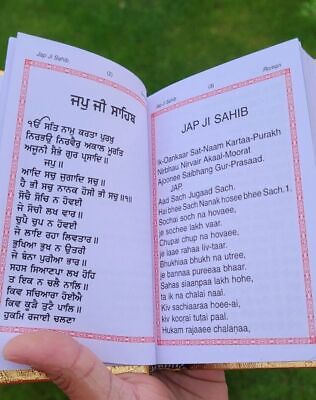 Jap Ji Sahib
(2)
ਜਪੁ ਜੀ ਸਾਹਿਬ
ੴ ਸਤਿ ਨਾਮੁ ਕਰਤਾ ਪੁਰਖੁ
ਨਿਰਭਉ ਨਿਰਵੈਰੁ ਅਕਾਲ ਮੂਰਤਿ
ਅਜੂਨੀ ਸੈਭੰ ਗੁਰ ਪ੍ਰਸਾਦਿ॥
ਜਪੁ॥
ਆਦਿ ਸਚੁ ਜੁਗਾਦਿ ਸਚੁ॥
ਹੈ ਭੀ ਸਚੁ ਨਾਨਕ ਹੋਸੀ ਭੀ ਸਚੁ॥੧॥
ਸੋਚੈ ਸੋਚਿ ਨ ਹੋਵਈ
ਜੇ ਸੋਚੀ ਲਖ ਵਾਰ॥
ਚੁਪੈ ਚੁਪ ਨ ਹੋਵਈ
ਜੇ ਲਾਇ ਰਹਾ ਲਿਵਤਾਰ॥
ਭੁਖਿਆ ਭੁਖ ਨ ਉਤਰੀ
ਜੇ ਬੰਨਾ ਪੁਰੀਆ ਭਾਰ॥
ਸਹਸ ਸਿਆਣਪਾ ਲਖ ਹੋਹਿ
ਤ ਇਕ ਨ ਚਲੈ ਨਾਲਿ॥
ਕਿਵ ਸਚਿਆਰਾ ਹੋਈਐ
ਕਿਵ ਕੂੜੈ ਤੁਟੈ ਪਾਲਿ॥
ਹੁਕਮਿ ਰਜਾਈ ਚਲਣਾ
Jap Ji Sahib
(3)
Roman
JAP JI SAHIB
Ik-Oankaar Sat-Naam Kartaa-Purakh
Nirbhau Nirvair Akaal-Moorat
Ajoonee Saibhang Gur-Prasaad.
JAP.
Aad Sach Jugaad Sach.
Hai bhee Sach Nanak hosee bhee Sach.1.
Sochai soch na hovaee,
je sochee lakh vaar.
Chupai chup na hovaee,
je laae rahaa liv-taar.
Bhukhiaa bhukh na utree,
je bannaa pureeaa bhaar.
Sahas siaanpaa lakh hohe,
ta ik na chalai naal.
Kiv sachiaaraa hoee-ai,
kiv koorai tutai paal.
Hukam rajaaee chalanaa,